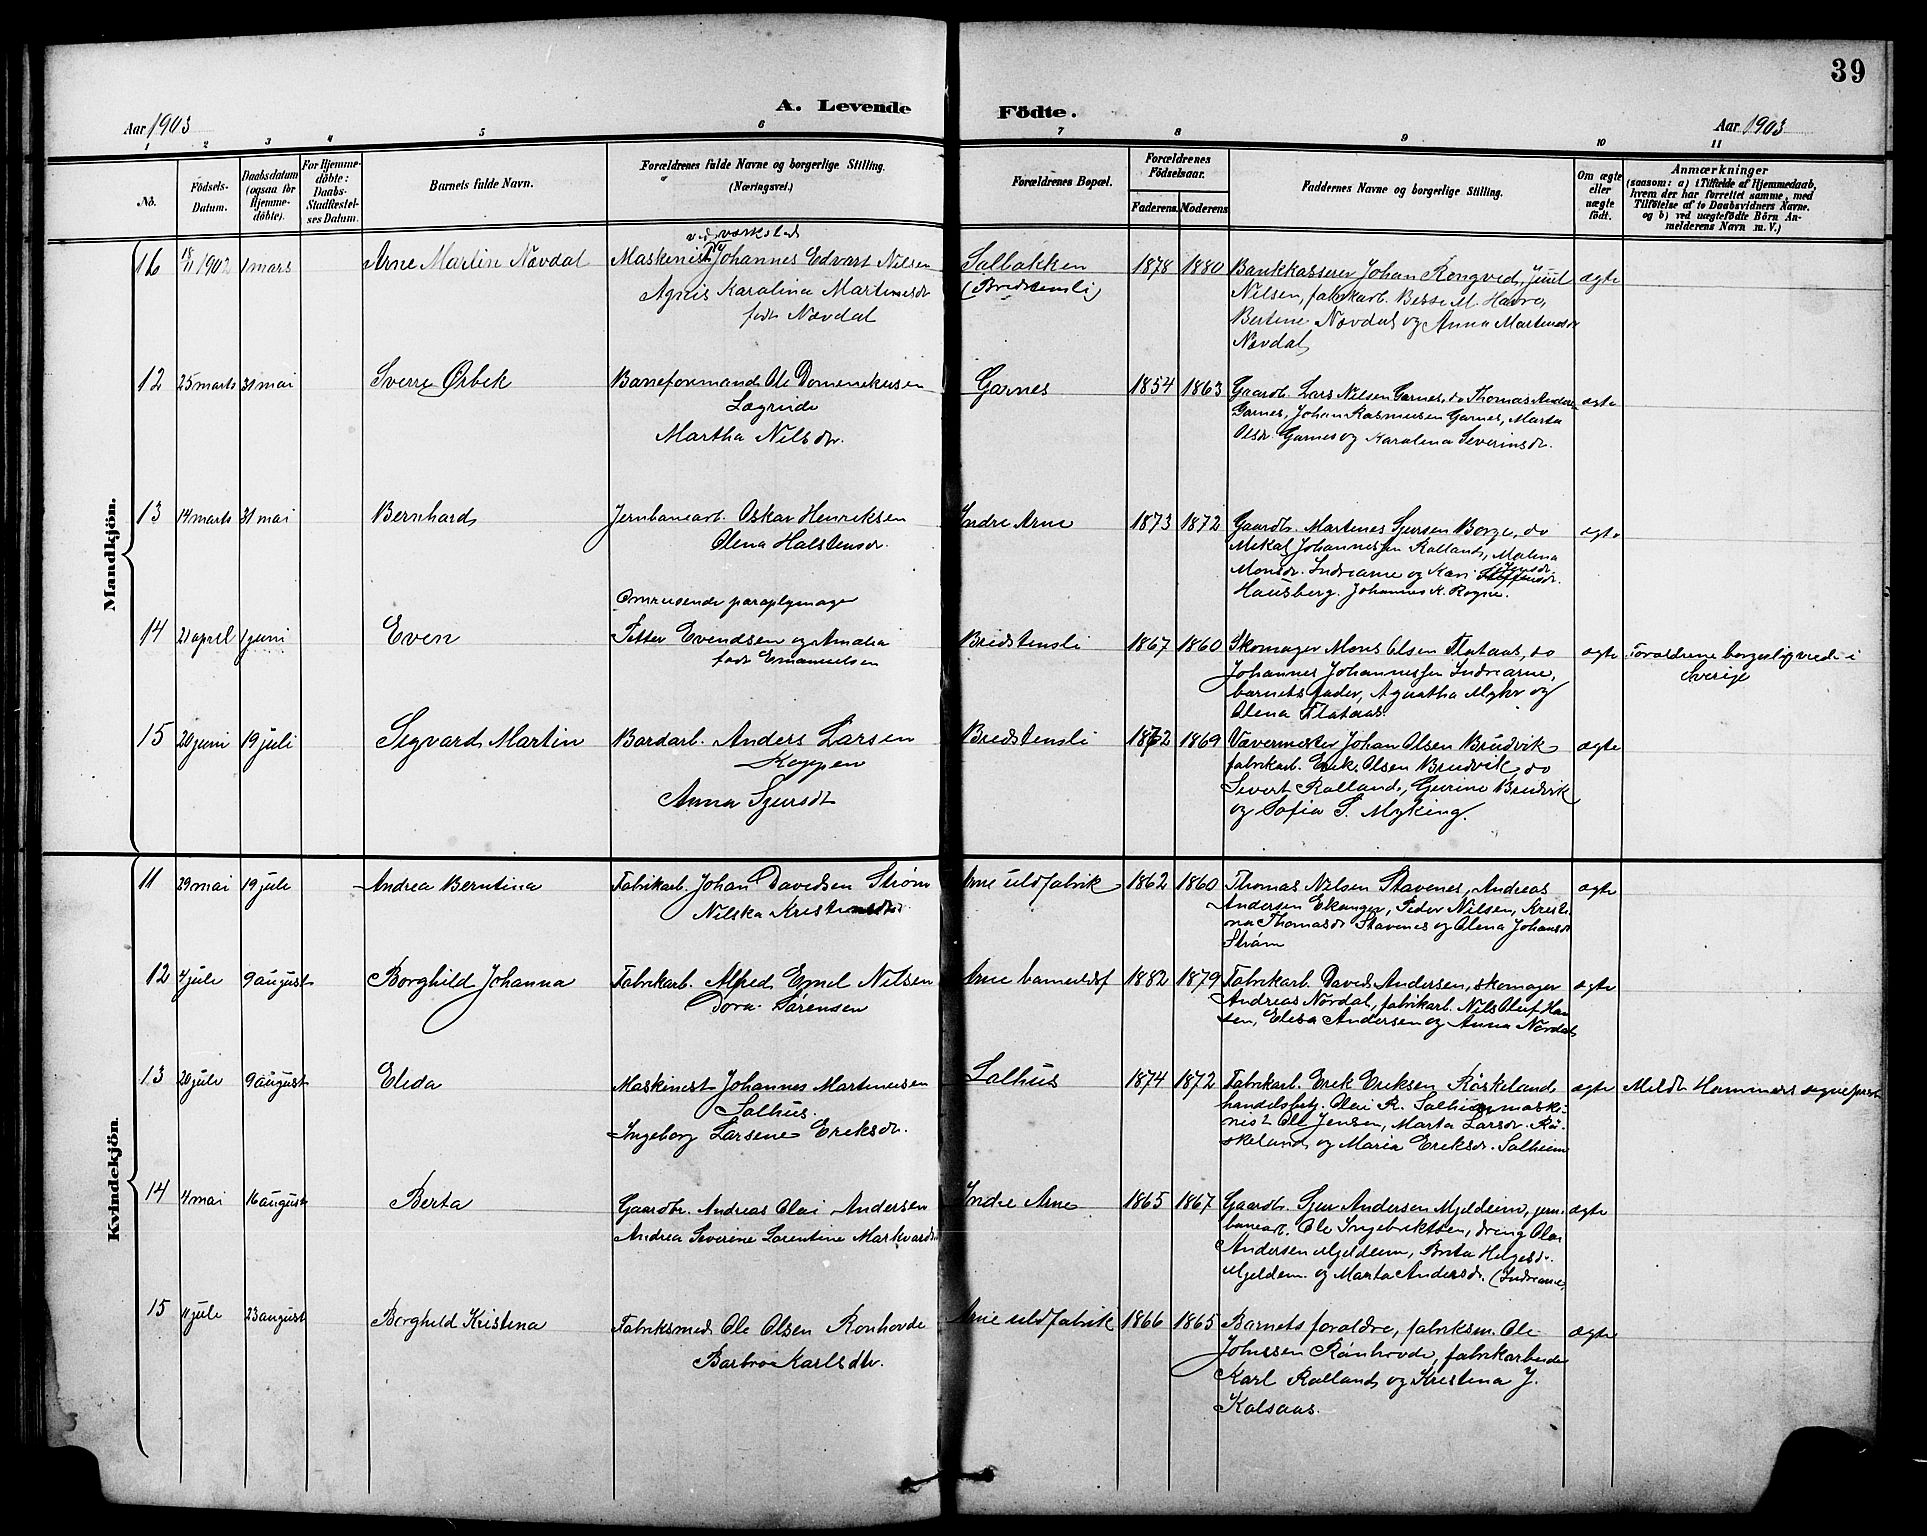 39
A. Levende Födte.
Aar 1903
Aar 1903
1 2 3 4 5 6 7 8 9 10 11
No.
Födsels-Datum.
Daabsdatum (ogsaa for Hjemme-döbte).
For Hjemme-döbte: Daabs-Stadfæstel-ses Datum.
Barnets fulde Navn.
Forældrenes fulde Navne og borgerlige Stilling. (Næringsvei.)
Forældrenes Bopæl.
Forældrenes Födselsaar.
Faderens Moderens
Faddernes Navne og borgerlige Stilling.
Om ægte eller uægte født.
Anmærkninger
(saasom: a) i Tilfælde af Hjemmedaab,
hvem der har forrettet samme, med
Tilföielse af to Daabsvidners Navne.
og b) ved uægtefödte Börn An-
melderens Navn m. V.)
Mandkjön.
11 18/11 1902 1 mars Arne Martin Navdal
Maskinist ved værksted Johannes Edvart Nilsen
Agnis Karalina Martinesdr
født Navdal
Salbakken
(Bredstensli)
1878 1880
Bankkasserer Johan Rongved, Juul
Nilsen, fabrikarb. Besse M. Havre,
Bertine Navdal og Anna Martinsdr
Navdal
ægte
12 25 marts 31 mai Sverre Ørbek
Baneformand Ole Domenikusen
Lægreide
Martha Nilsdr.
Garnes
1854 1863
Gaardb. Lars Nilsen Garnes, do Thomas Anders
Garnes, Johan Rasmusen Garnes, Marta
Olsdr. Garnes og Karalina Severinsdr.
ægte
13 14 marts 31 mai Bernhard
Jernbanearb. Oskar Henriksen
Olena Halstensdr.
Indre Arne
1873 1872
Gaardb. Martines Sjursen Borge, do
Mikal Johannesen Rolland, Malena
Monsdr. Indrearne og Kari Jensdr.
Hausberg. Johannes K. Rogne.
ægte
14 21 april 1 juni Even
Omreisende paraplymager
Petter Evendsen og Amalia
født Emanuelsen
Bredstensli
1867 1860
Skomager Mons Olsen Flataas, do
Johannes Johannessen Indrearne,
barnets fader, Agaatha Myhr og
Olena Flataas.
ægte
Forældrene borgerlig viede i
Sverige
15 20 juni 19 juli Sigvard Martin
Bordarb. Anders Larsen
Koppen
Anna Sjursdt
Bredstensli
1872 1869
Vævermester Johan Olsen Bruvik
fabrikarb. Erik Olsen Bruvik, do
Sivert Rolland, Gurine Bruvik
og Sofia S. Myking.
ægte
Kvindekjön.
11 29 mai 19 jule Andrea Berntina
Fabrikarb. Johan Davidsen Strøm
Nilska Kristensdr.
Arne uldfabrik
1862 1860
Thomas Nilsen Stavenes, Andreas
Andersen Ekanger, Peder Nilsen, Kristi-
na Thomasdr Stavenes og Olena Johansdr
Strøm
ægte
12 4 jule 9 august Borghild Johanna
Fabrikarb. Alfred Emil Nilsen
Dora Sørensen
Arne bomuldsf
1882 1879
Fabrikarb. David Andersen, skomager
Andreas Nordal, fabrikarb. Nils Oluf Han
sen, Elesa Andersen og Anna Nordal
ægte
13 20 jule 9 august Elida
Maskinist Johannes Martinusen
Salhus.
Ingeborg Larsene Eriksdr.
Salhus
1874 1872
Fabrikarb. Erik Eriksen Røskeland
handelsbetj. Olai R. Salheim maski-
nist Ole Jensen, Marta Larsdr. Rø-
skeland og Maria Eriksdr. Salheim
ægte
Meldt Hammers sognepræst
14 4 mai 16 august Berta
Gaardbr. Andreas Olai Andersen
Andrea Severine Lorentine Markvardsd
Indre Arne
1865 1867
Gaardb. Sjur Andersen Mjeldeim, jern-
banearb. Ole Ingebriktsen, dreng Olai
Andersen Mjeldeim, Brita Helgesd.
Mjeldem. og Marta Andersdr. (Indrearne,
ægte
15 11 jule 23 august Borghild Kristina
Fabriksmed Ole Olsen Ronhovde
Barbro Karlsdtr.
Arne uldfabrik
1866 1865
Barnets forældre, fabriksm. Ole
Johnssen Rönhovde, fabrikarbeider
Karl Rolland og Kristina J.
Kalsaas.
ægte